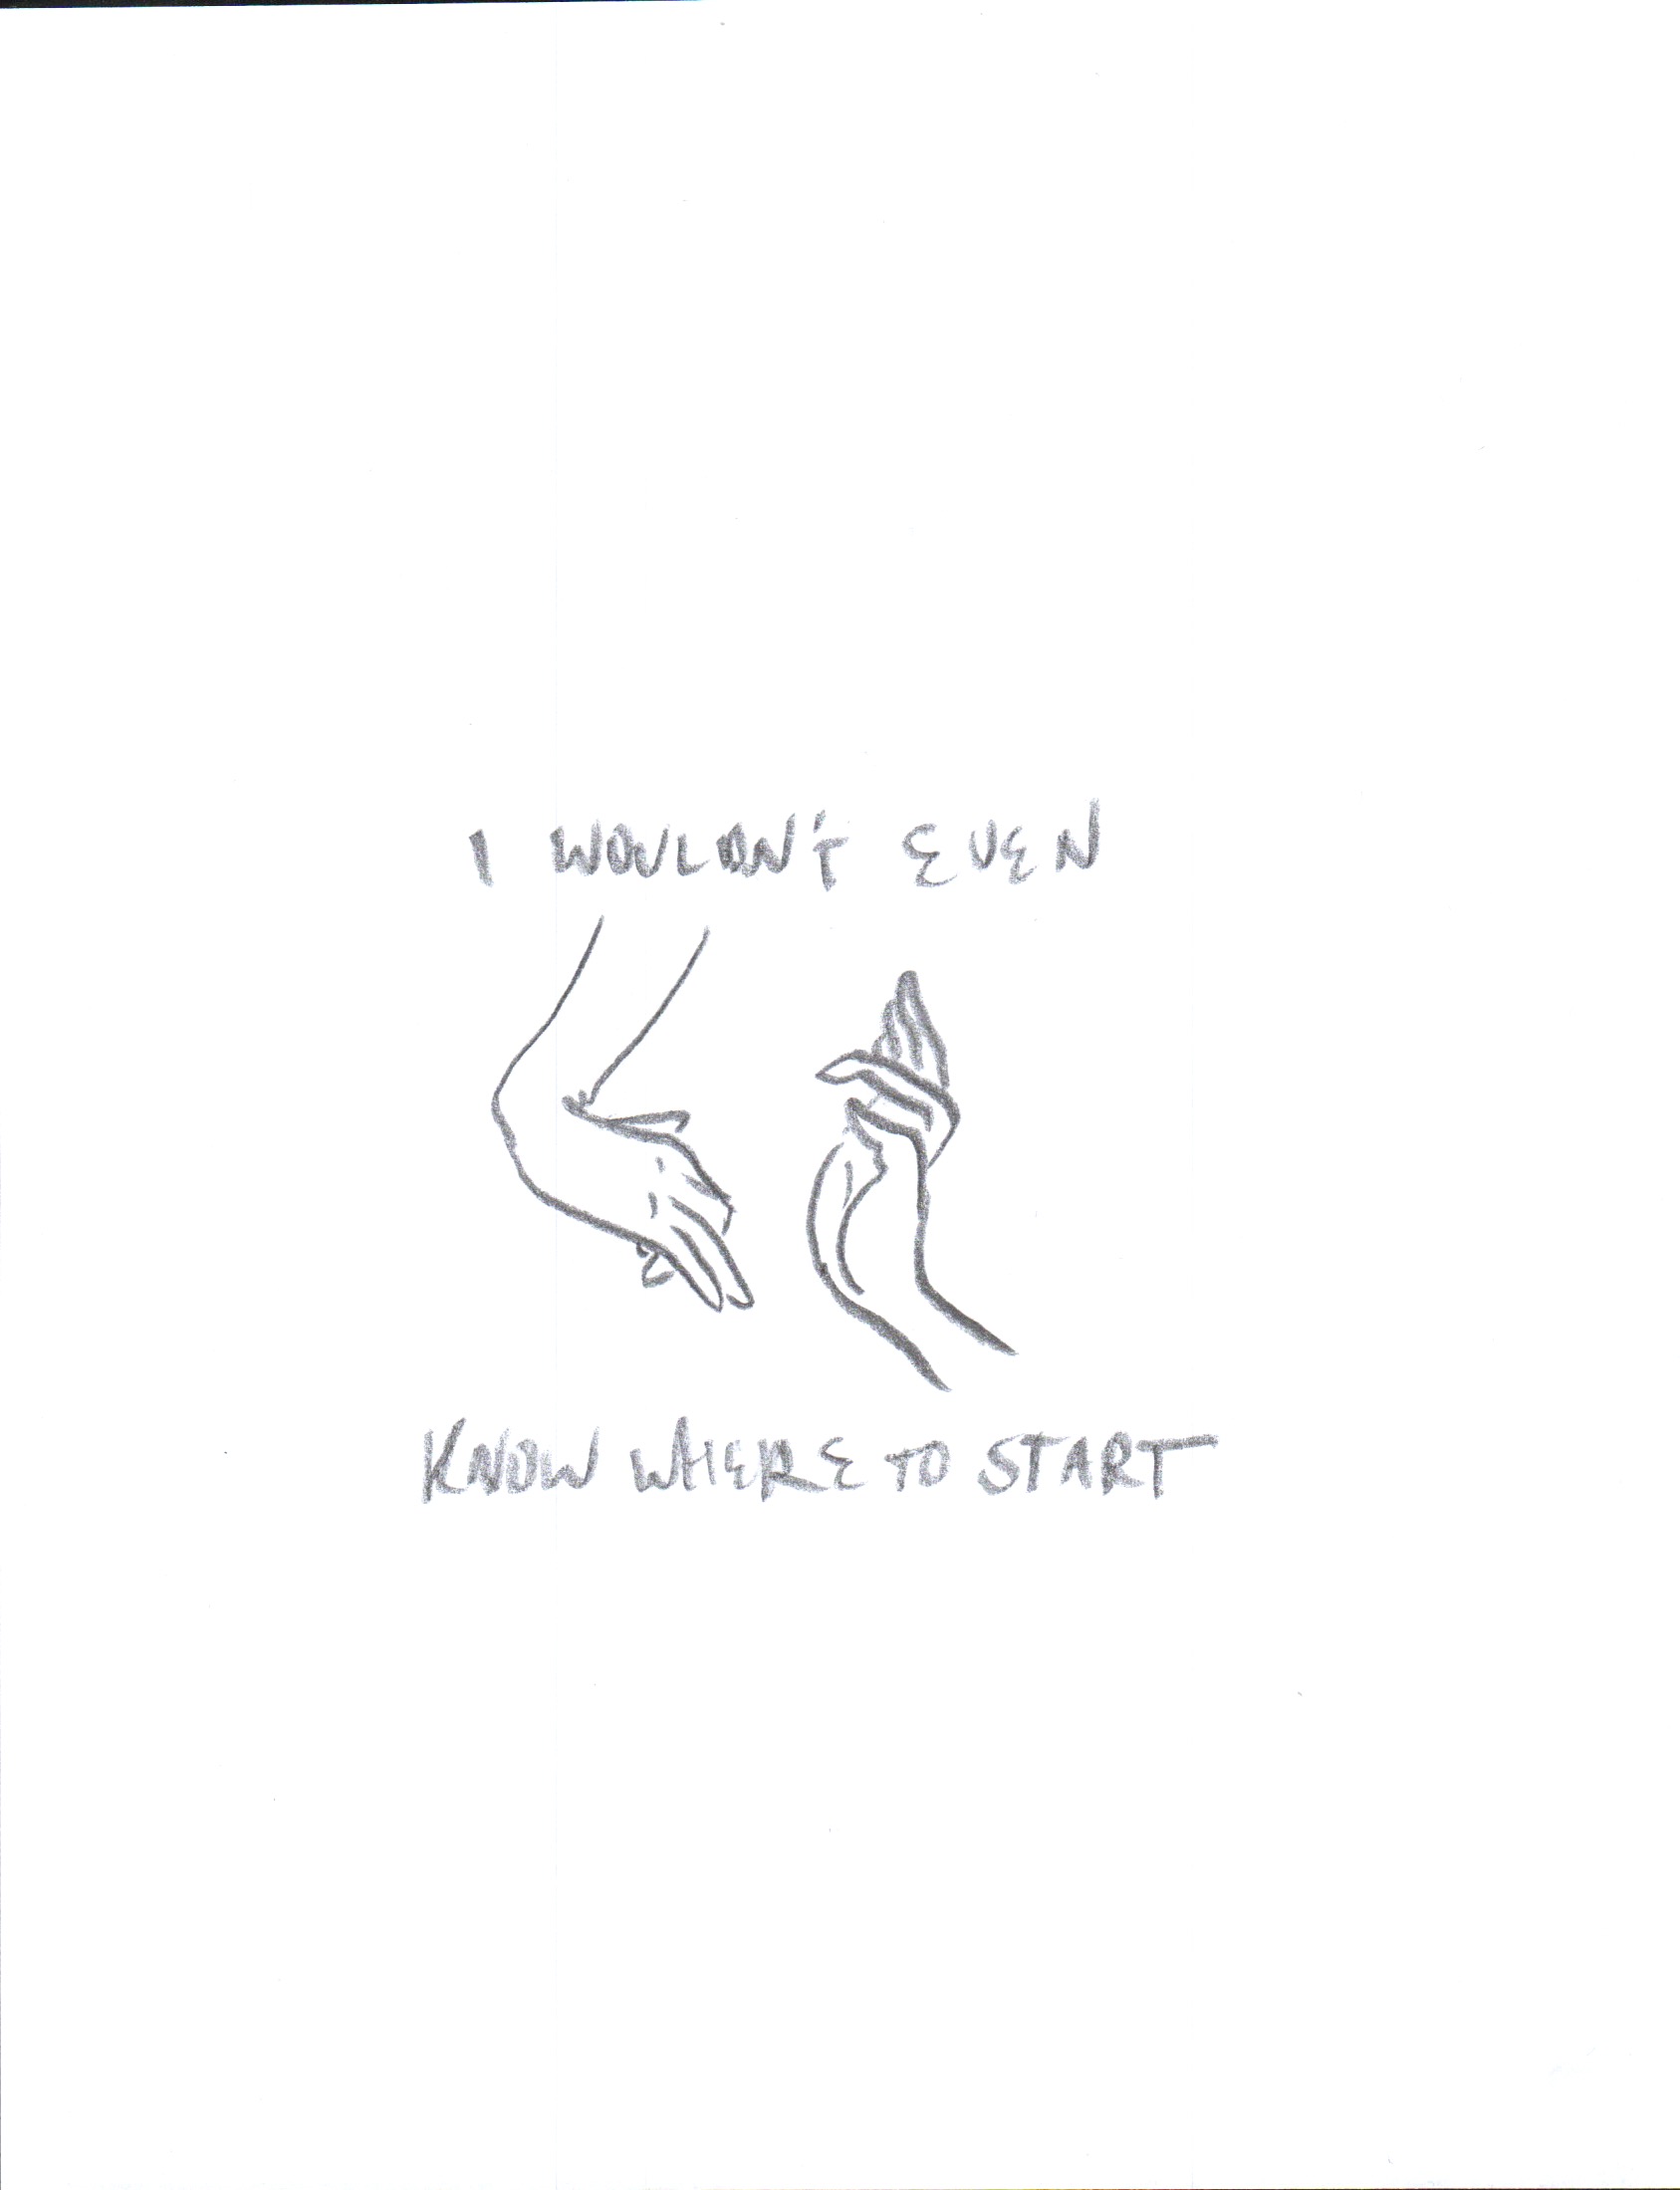 I WOULDN'T EVEN
KNOW WHERE TO START